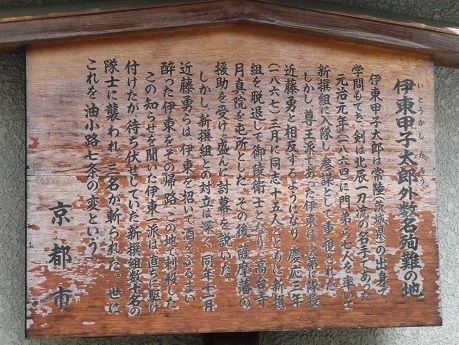 伊東甲子太郎外数名殉難の地
いとうかしたろう
伊東甲子太郎は常陸(茨城県)の出身で
学問もでき、剣は北辰一刀流の名手であった。
元治元年(一八六四)に門弟ら七人を率いて
新撰組に入隊し、参謀として重視された。
しかし、尊王派であった伊東は、次第に隊長
近藤勇と相反するようになり、慶応三年
(一八六七)三月に同志十五人とともに新撰
組を脱退して御陵衛士となり、高台寺
月真院を屯所とした。その後、薩摩藩の
援助を受け、盛んに討幕を説いた。
しかし、新撰組との対立は深く、同年十一月
近藤勇らは、伊東を招いて酒をふるまい
酔った伊東をその帰路、この地で刺殺した。
この知らせを聞いた伊東一派は直ちに駆け
付けたが、待ち伏せしていた新撰組数十名の
隊士に襲われ、三名が斬られた。世に
これを油小路七条の変という。
京都市